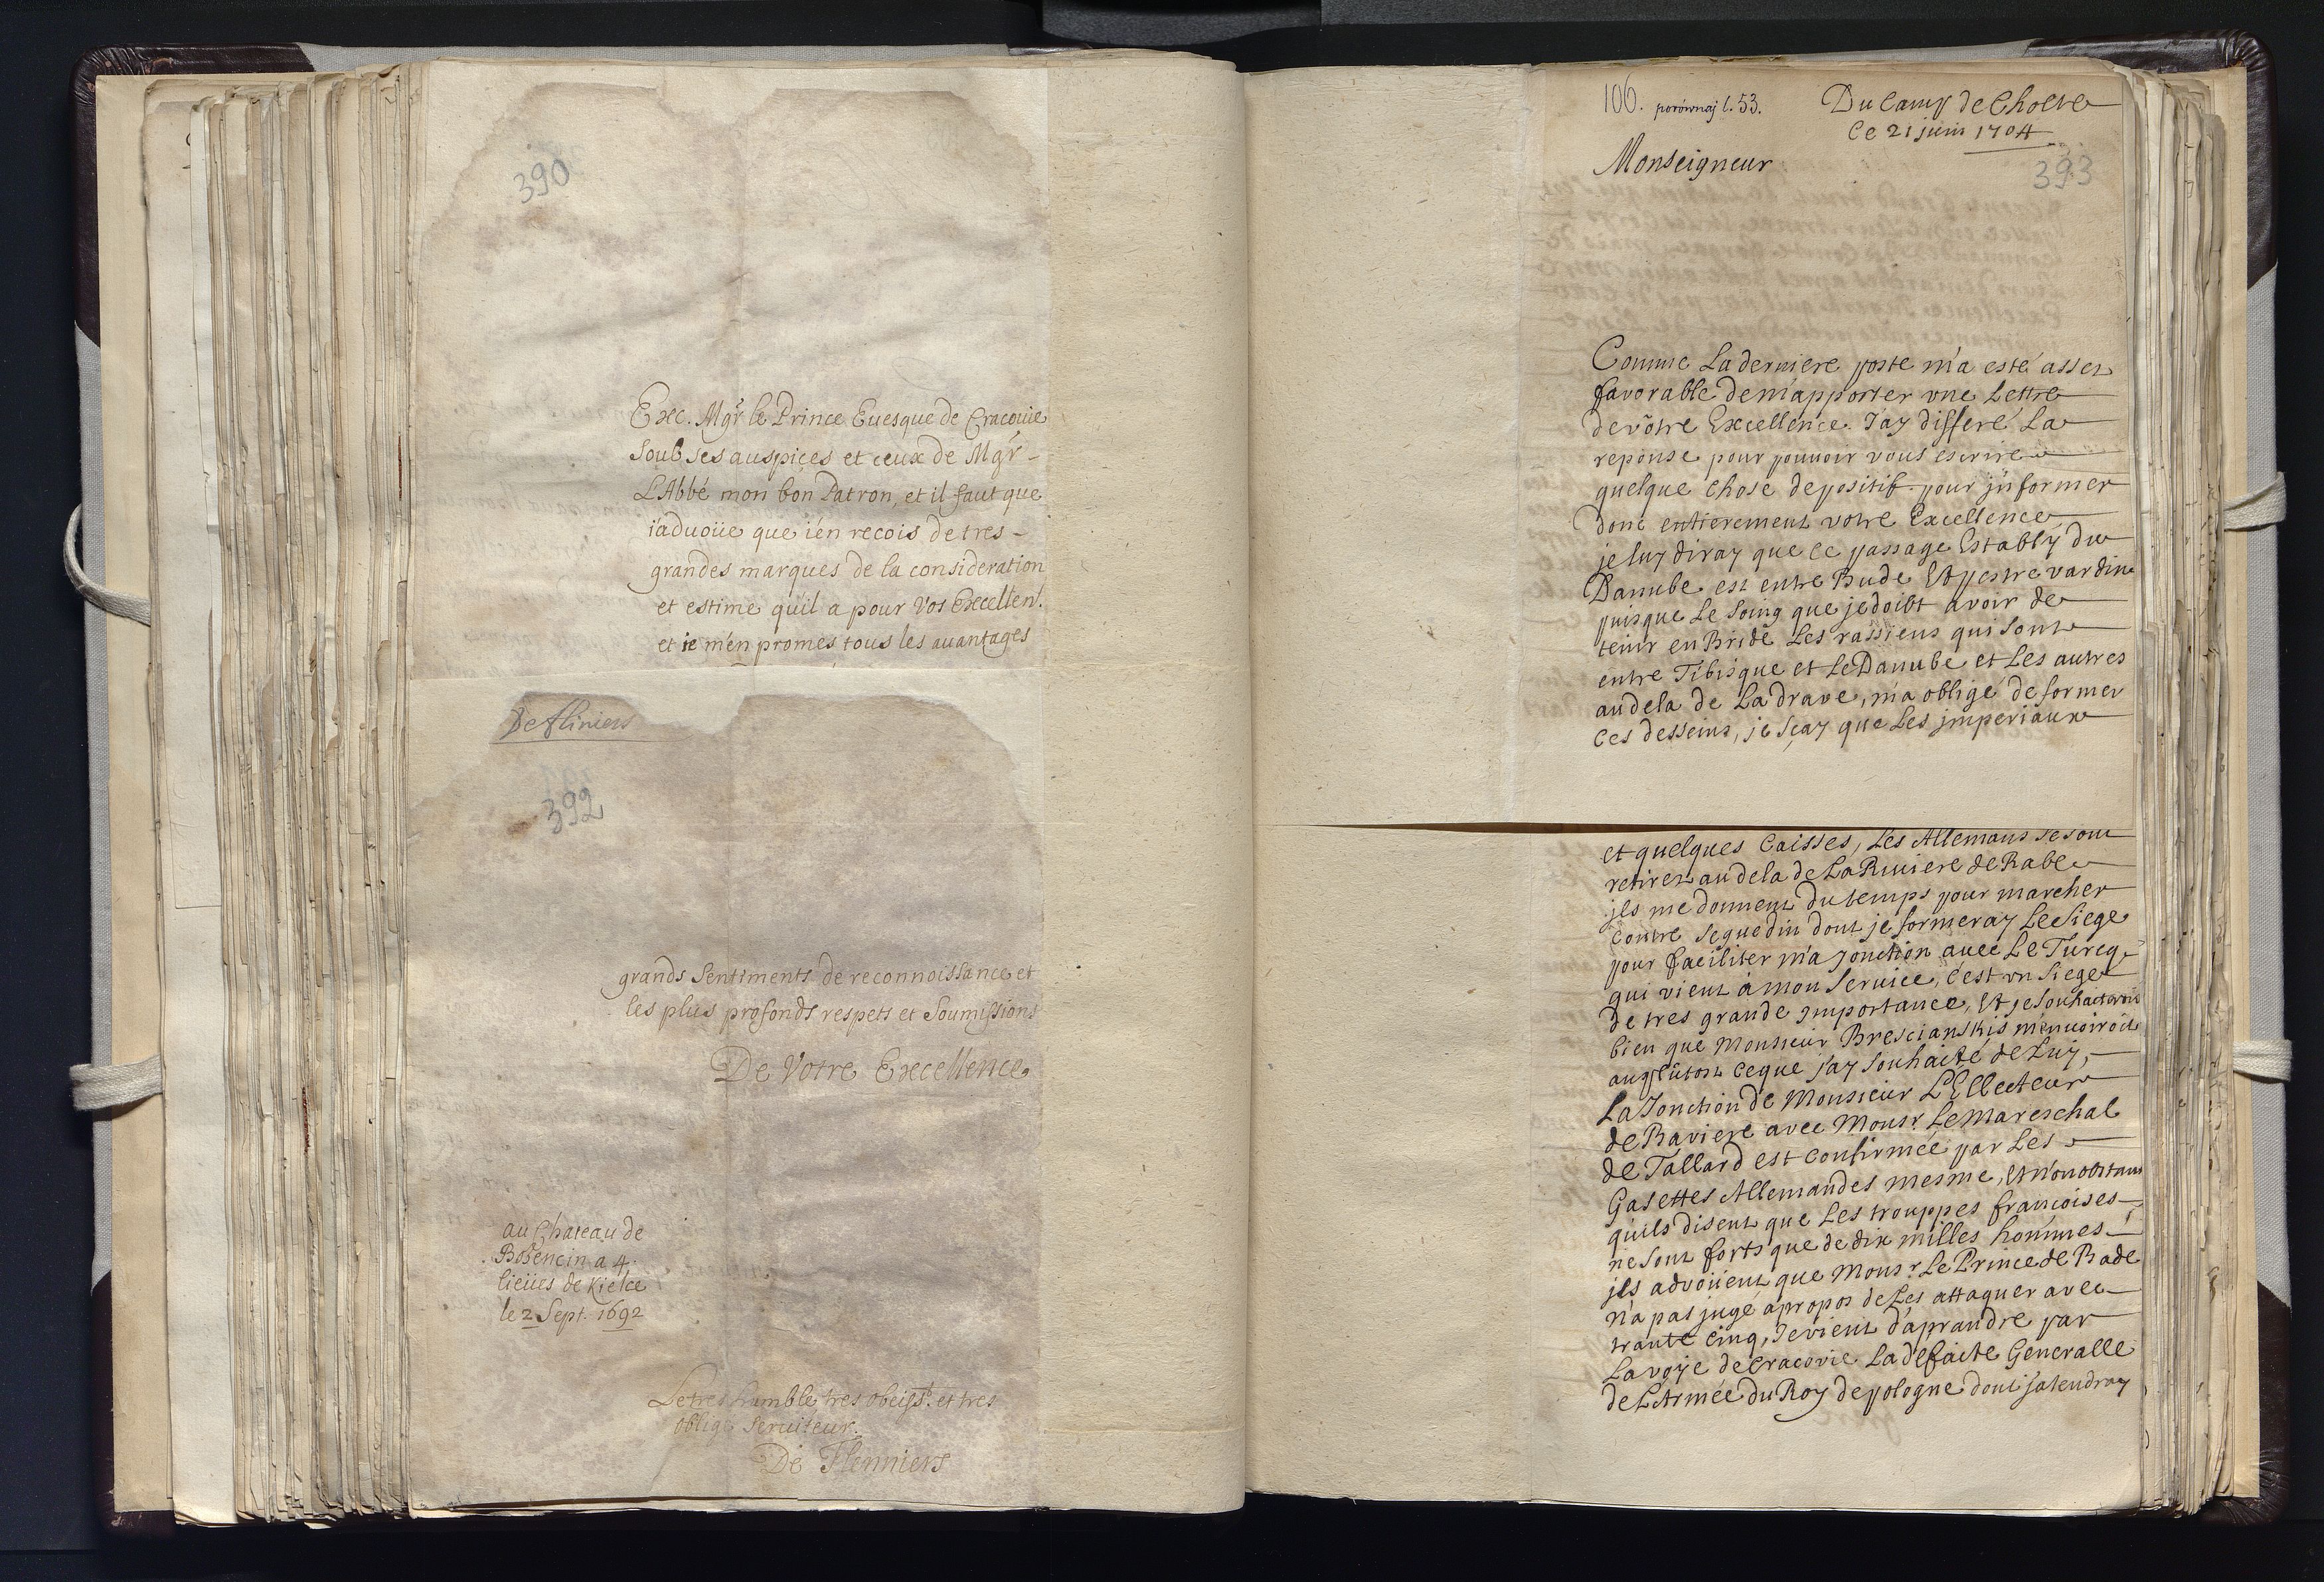 390
Exc. Mgr le Prince Euesque de Cracouie
soub ses auspices et ceux de Mgr -
L'Abbé mon bon Patron, et il faut que
i'aduoüe que i'en recois de tres -
grandes marques de la consideration
et estime qu'il a pour Vos Excellen.
et ie m'en promes tous les auantages
De fliniers
392
grands sentiments de reconnoissance et
les plus profonds respets et soumissions
De Votre Excellence
au Chateau de
Bosencin a 4
lieües de Kielce
le 2 Sept. 1692
Le tres humble tres obeisst. et tres
oblig. seruiteur.
De Flenniers
106. porównaj l. 53.
Du Camp de Cholve
Ce 21 juin 1704
Monseigneur
393
Comme La derniere poste m'a esté asses
favorable de m'apporter vne Lettre
de vôtre Excellence. J'ay differé La
reponse pour pouuoir vous escrire
quelque chose de positif. pour jnformer
donc entierement votre Excellence
je luy diray que ce passage Estably du
Danube est entre Bude Et pestre vardin
puisque Le soing que je doibt avoir de
tenir en Bride Les rassiens qui sont
entre Tibisque et Le Danube et Les autres
au dela de La drave, m'a oblige de former
Ces desseins, je sçay que Les jmperiaux
et quelques Caisses, Les Allemans se sont
retirez au dela de La Riuiere de Rabe
jls me donnent du temps pour marcher
contre Seguedin dont je formeray Le Siege
pour faciliter m'a jonction auec Le Turcq
qui vient à mon Seruice, C'est vn Siege
de tres grande jmportance, Et je souhaiterois
bien que Monsieur Brescianskis m'enuoiroit
au plûtost ce que j'ay souhaité de Luy,
La Jonction de Monsieur L'Ellecteur
de Baviere avec Monsr. Le Mareschal
de Tallard est confirmée par Les
Gasettes Allemandes mesme, Et nonobstant
qu'ils disent que Les trouppes francoises
ne sont forts que de dix milles hommes
jls advoüent que Monsr. Le Prince de Bade
n'a pas jugé apropos de Les attaquer avec
trante cinq, Je vient d'aprandre par
La voye de Cracovie La defaite Generalle
de L'Armée du Roy de pologne dont j'atendray